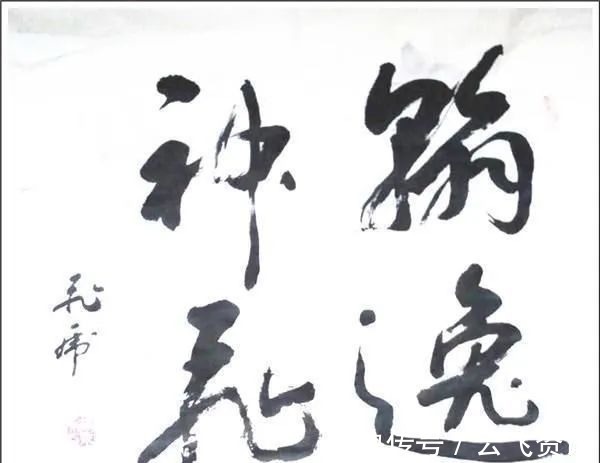 翰逸
神飛
飛虎
传号 / 云飞